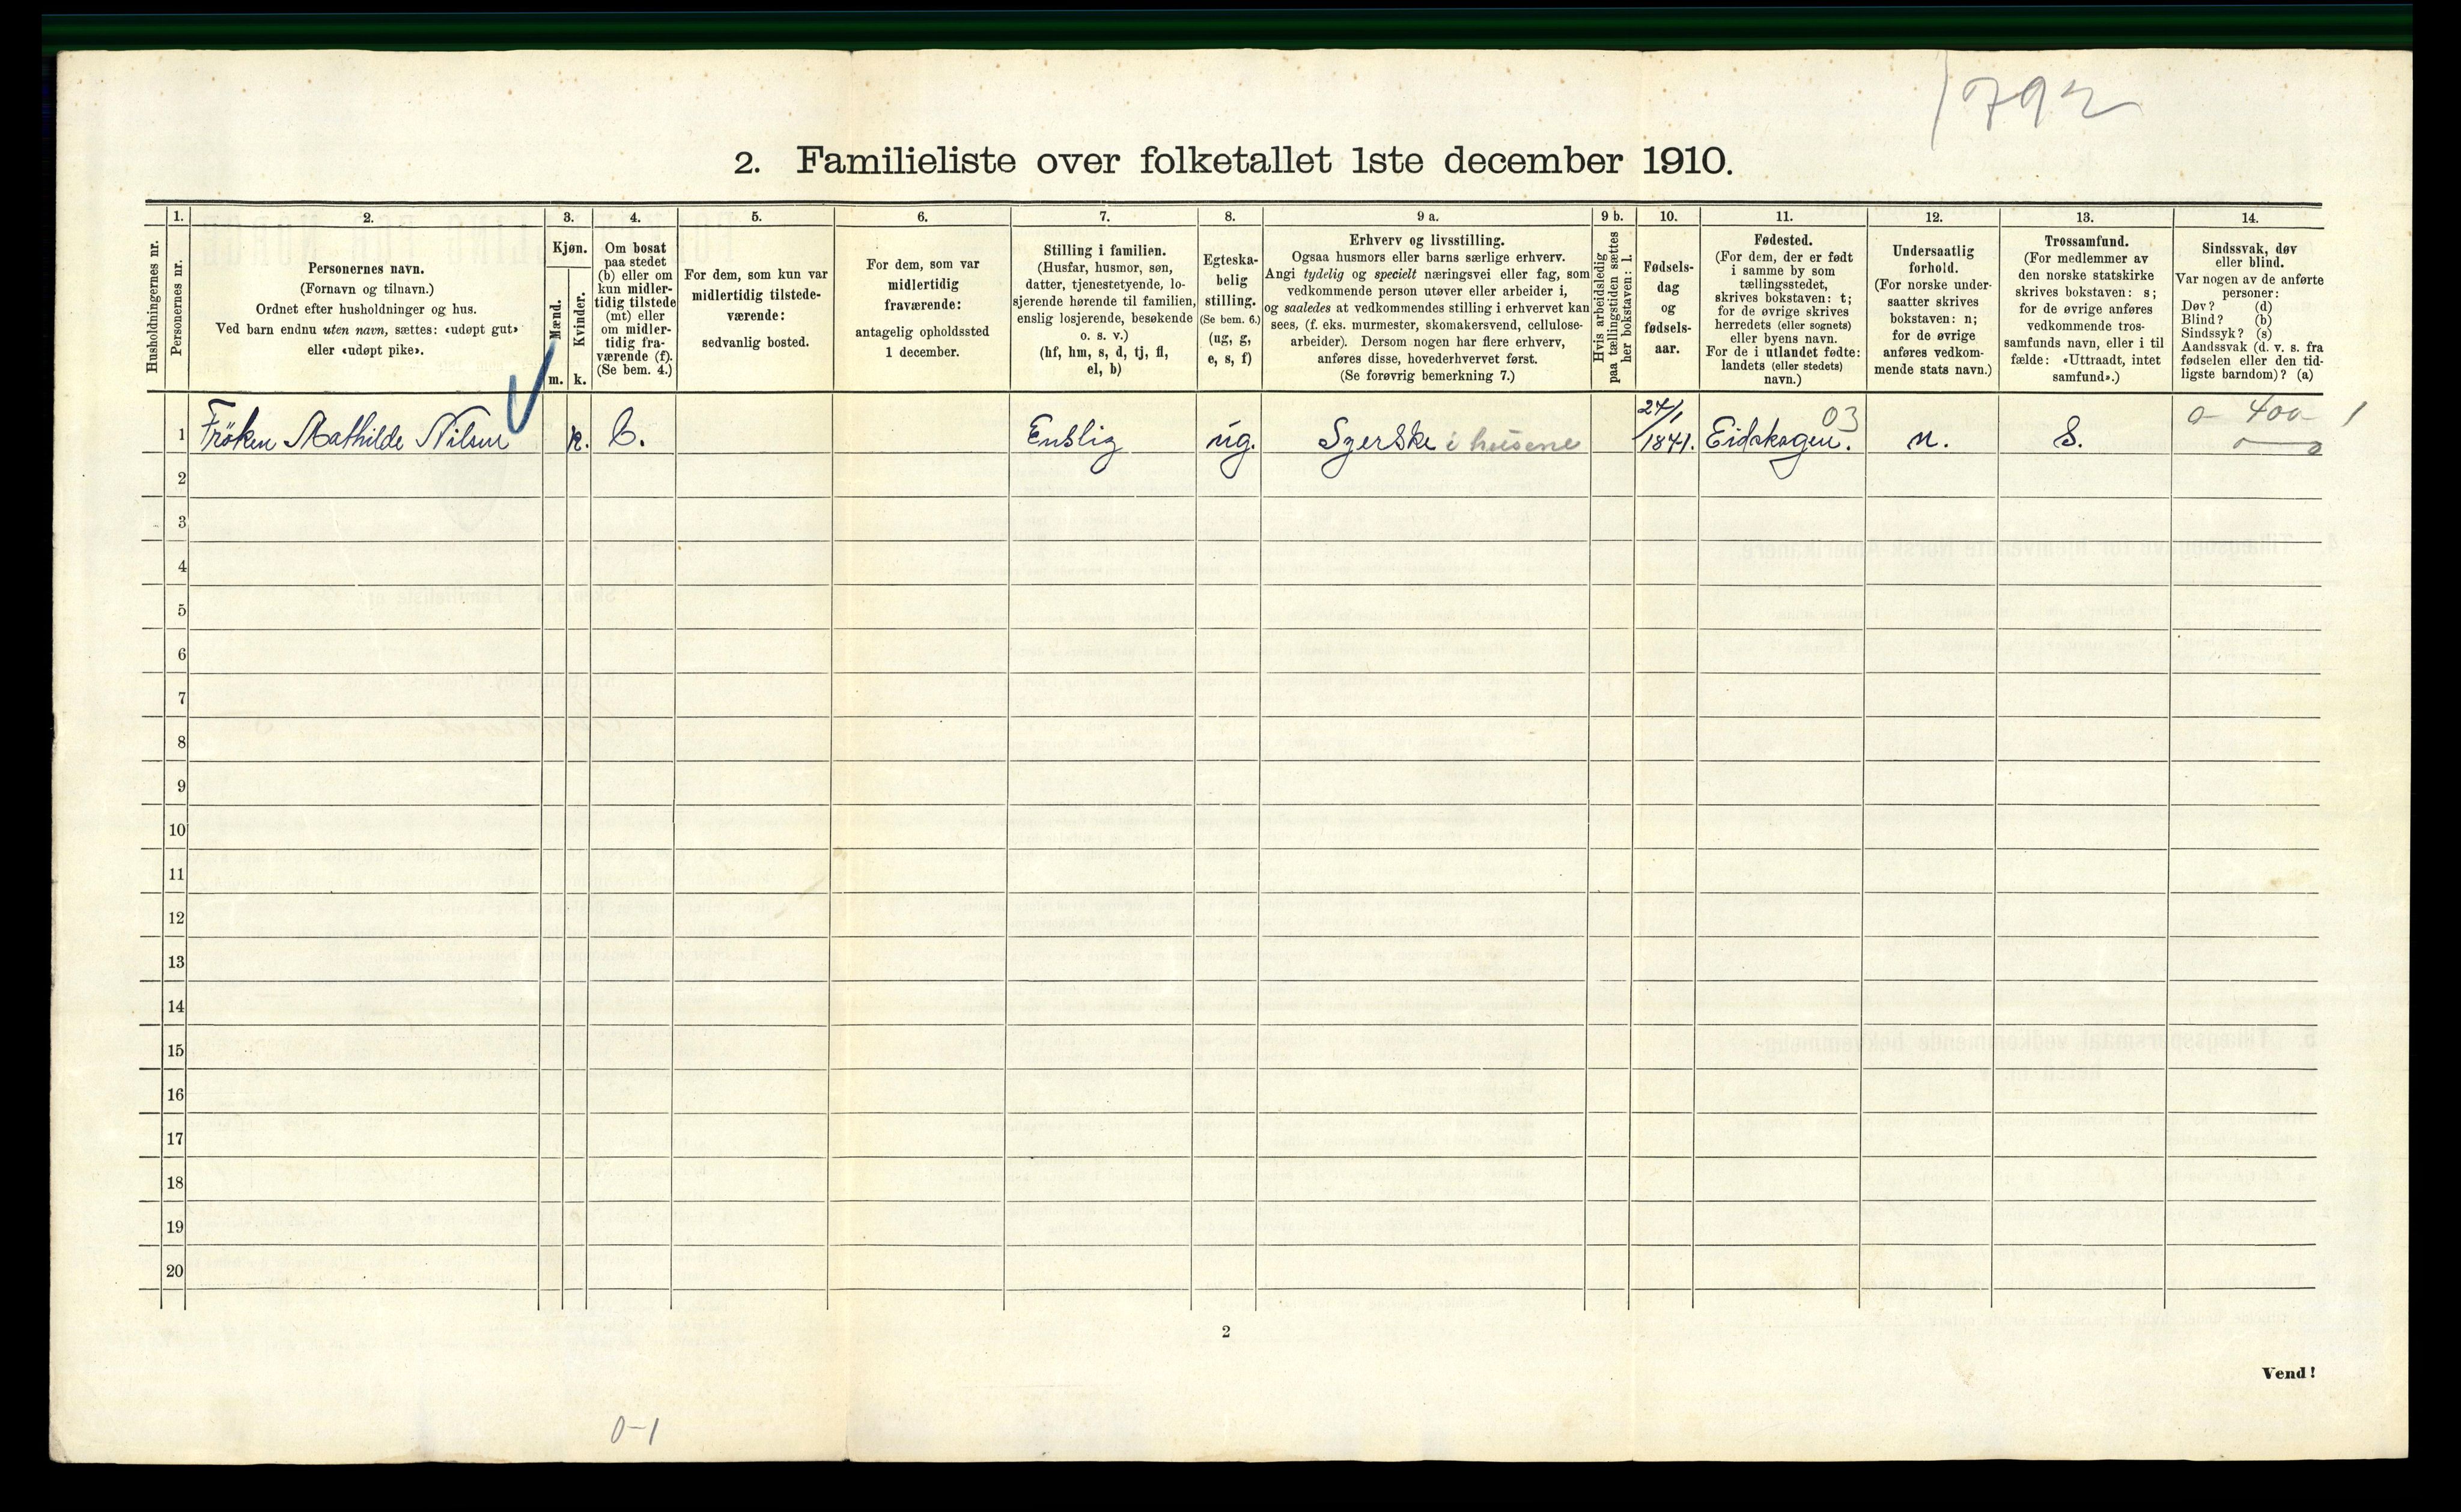 792
2. Familieliste over folketallet 1ste december 1910.
Husholdningernes nr.
1.
Personernes nr.
2.
Personernes navn.
(Fornavn og tilnavn.)
Ordnet efter husholdninger og hus.
Ved barn endnu uten navn, sættes: «udøpt gut»
eller «udøpt pike».
3.
Kjøn.
Mænd.
m.
Kvinder.
k.
4.
Om bosat
paa stedet
(b) eller om
kun midler-
tidig tilstede
(mt) eller
om midler-
tidig fra-
værende (f).
(Se bem. 4.)
5.
For dem, som kun var
midlertidig tilstede-
værende:
sedvanlig bosted.
6.
For dem, som var
midlertidig
fraværende:
antagelig opholdssted
1 december.
7.
Stilling i familien.
(Husfar, husmor, søn,
datter, tjenestetyende, lo-
sjerende hørende til familien,
enslig losjerende, besøkende
o. s. v.)
(hf, hm, s, d, tj, fl,
el, b)
8.
Egteska-
belig
stilling.
(Se bem. 6.)
(ug, g,
e, s, f)
9 a.
Erhverv og livsstilling.
Ogsaa husmors eller barns særlige erhverv.
Angi tydelig og specielt næringsvei eller fag, som
vedkommende person utøver eller arbeider i,
og saaledes at vedkommendes stilling i erhvervet kan
sees, (f. eks. murmester, skomakersvend, cellulose-
arbeider). Dersom nogen har flere erhverv,
anføres disse, hovederhvervet først.
(Se forøvrig bemerkning 7.)
9 b.
Hvis arbeidsledig
paa tællingstiden sættes
her bokstaven: l.
10.
Fødsels-
dag
og
fødsels-
aar.
11.
Fødested.
(For dem, der er født
i samme by som
tællingsstedet,
skrives bokstaven: t;
for de øvrige skrives
herredets (eller sognets)
eller byens navn.
For de i utlandet fødte:
landets (eller stedets)
navn.)
12.
Undersaatlig
forhold.
(For norske under-
saatter skrives
bokstaven: n;
for de øvrige
anføres vedkom-
mende stats navn.)
13.
Trossamfund.
(For medlemmer av
den norske statskirke
skrives bokstaven: s;
for de øvrige anføres
vedkommende tros-
samfunds navn, eller i til
fælde: «Uttraadt, intet
samfund».)
14.
Sindssvak, døv
eller blind.
Var nogen av de anførte
personer:
Døv? (d)
Blind? (b)
Sindssyk? (s)
Aandssvak (d. v. s. fra
fødselen eller den tid-
ligste barndom)? (a)
1 Fröken Mathilde Nilsen k. b. Enslig ug. Syerske i husene 24/1 1841. Eidskogen. 03 n. S. 0 400 1
2
3
4
5
6
7
8
9
10
11
12
13
14
15
16
17
18
19
20
2
Vend!
0-1